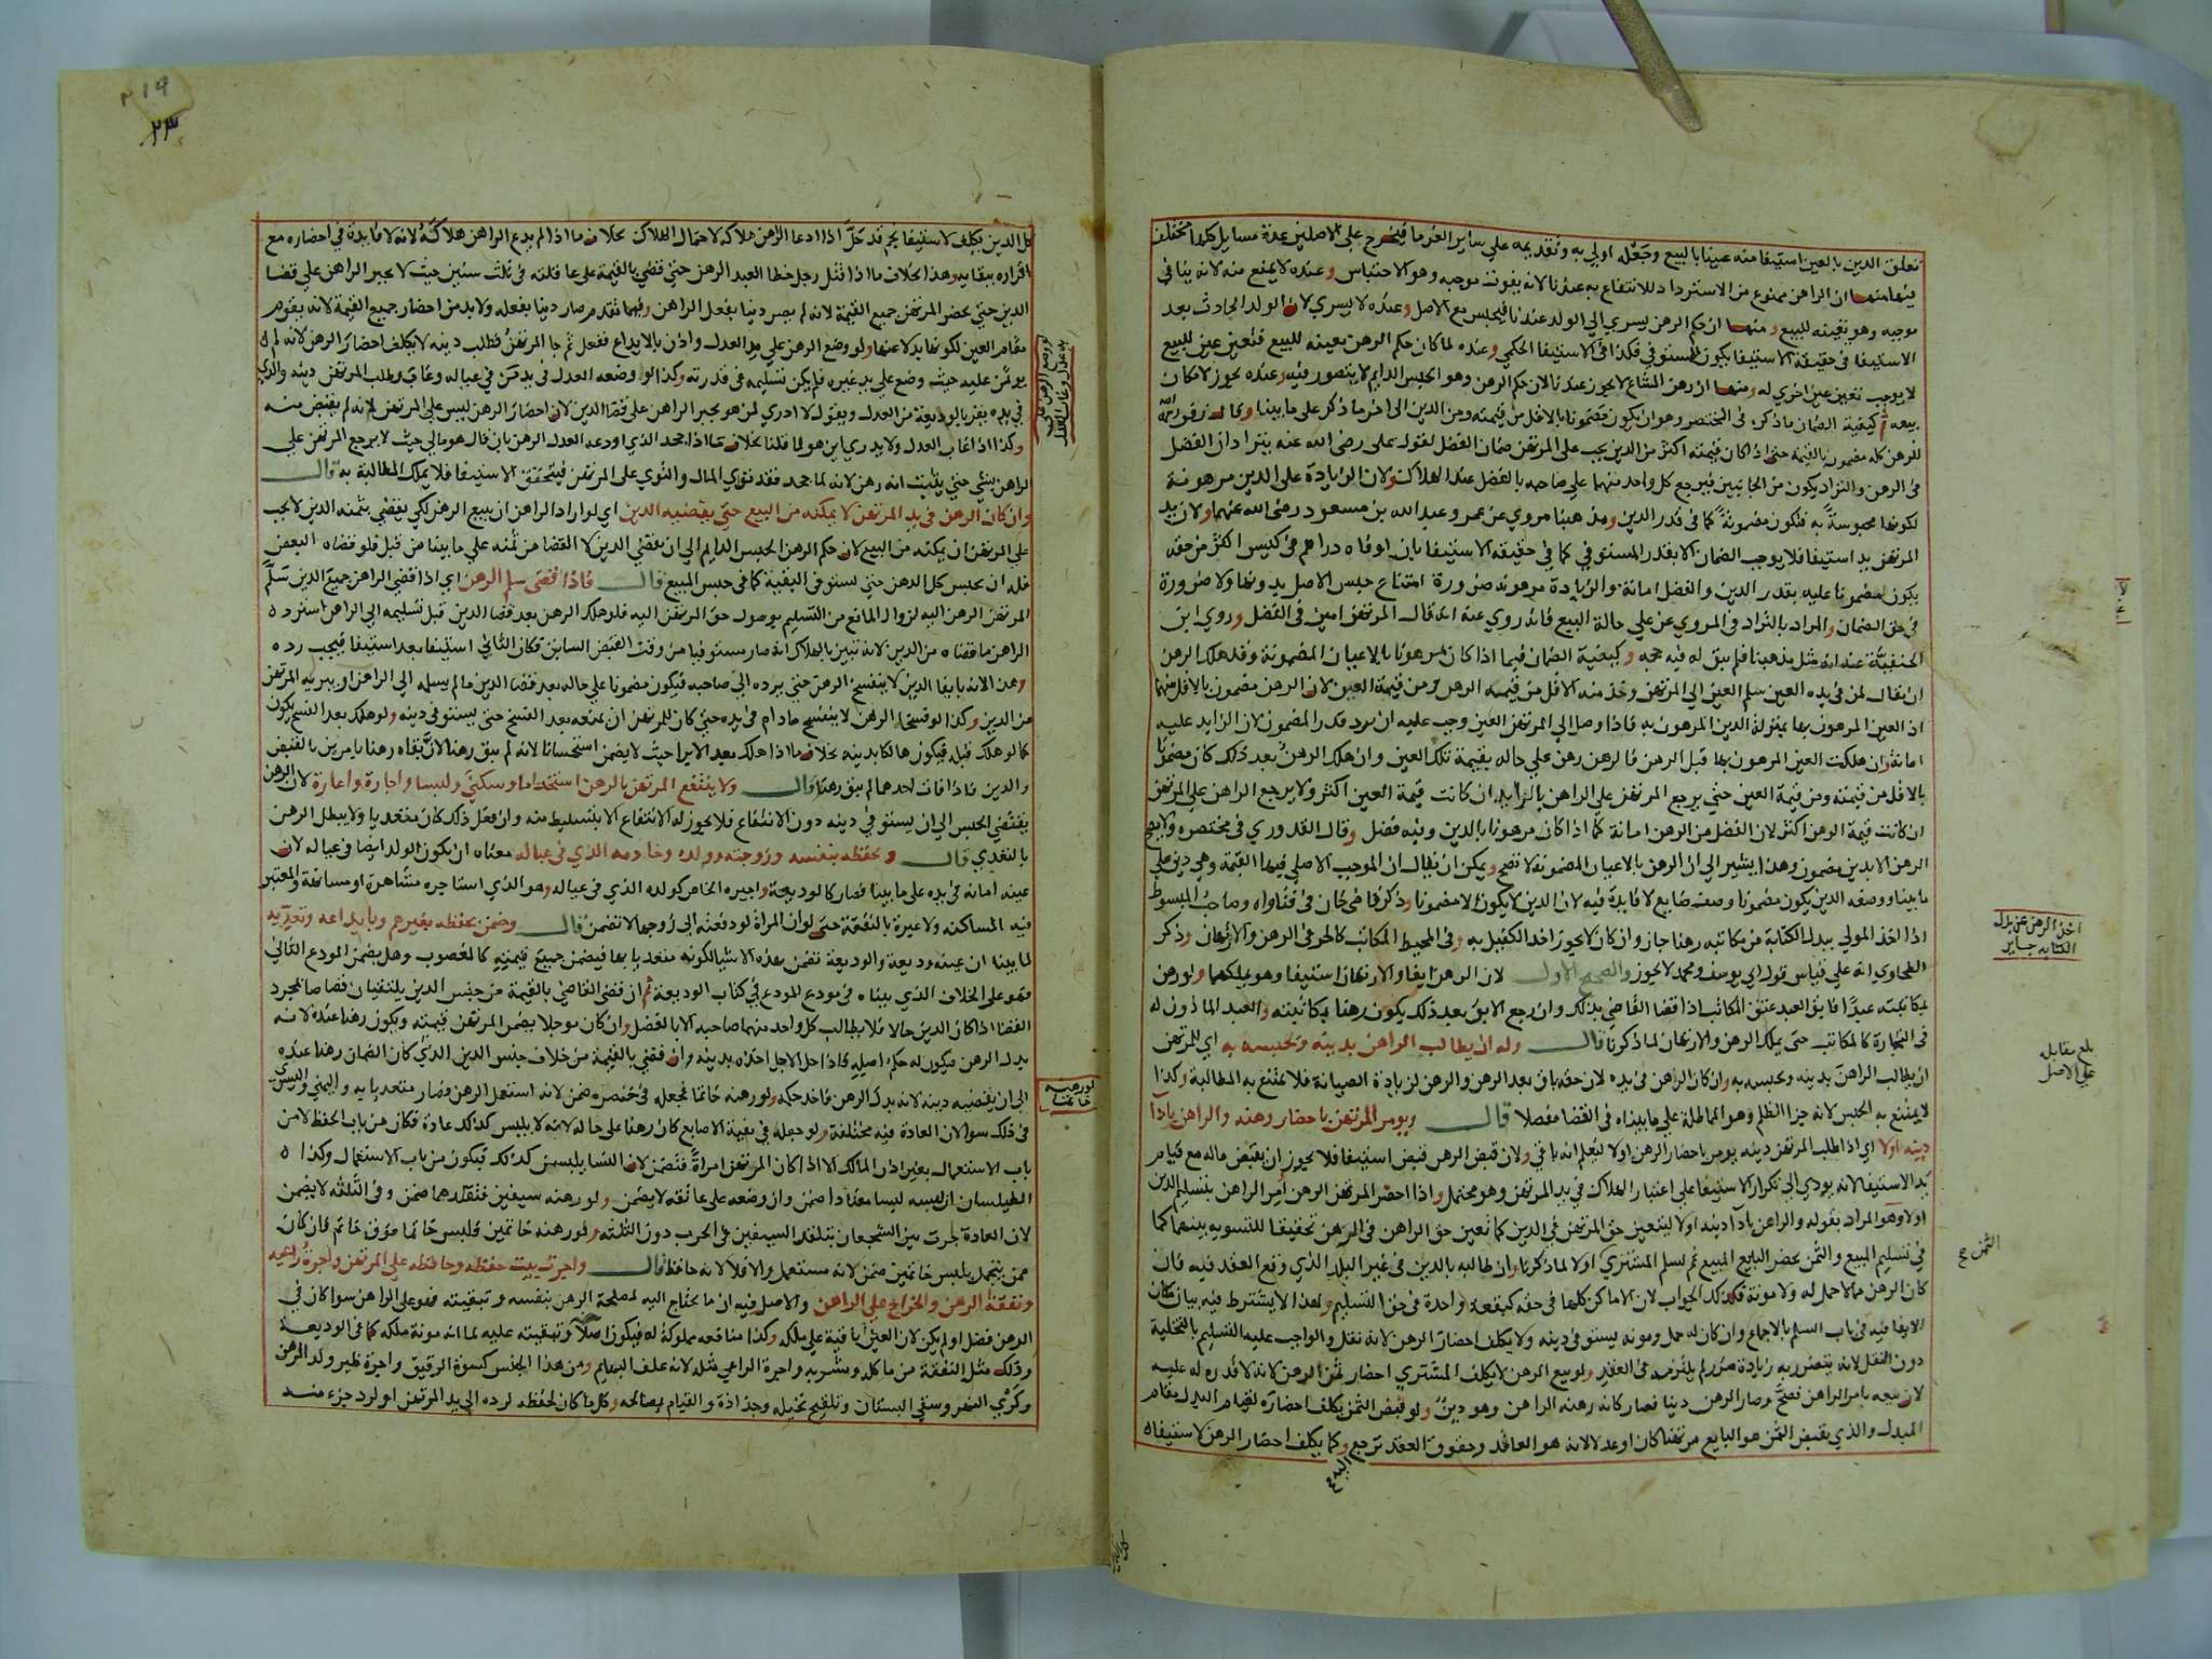 تعلق الدين بالعين استيفا منه عينا بالبيع وجعله اولي به وتقديمه علي ساير الغرما فيخرج علي الاصلين عدة مسايل كلها مختلف
فيها منها ان الراهن ممنوع من الاسترداد للانتفاع به عندنا لانه يفوت موجبه وهو الاحتباس وعنده لا يمنع منه لانه ينافي
موجبه وهو تعينه للبيع ومنها ان حكم الرهن يسري الي الولد عندنا فيحبس مع الاصل وعنده لا يسري لان الولد الحادث بعد
الاستيفا في حقيقة الاستيفا يكون للمستوفي فكذا في الاستيفا الحكمي وعنده لما كان حكم الرهن تعينه للبيع فتعين عين للبيع
لا يوجب تعين عين اخري له ومنها ان رهن المشاع لا يجوز عندنا لان حكم الرهن وهو الحبس الدايم لا يتصور فيه وعنده يجوز لامكان
بيعه ثم كيفية الضمان ما ذكره في المختصر وهو ان يكون مضمونا بالاقل من قيمته ومن الدين الي اخر ما ذكر علي ما بينا وقال زفر
الرهن كله مضمون بالقيمة حتي اذا كان قيمته اكثر من الدين يجب علي المرتهن ضمان الفضل لقول علي رضي الله عنه يترادان الفضل
في الرهن والتراد يكون من الجانبين فيرجع كل واحد منهما علي صاحبه بالفضل عند الهلاك ولان الزيادة علي الدين مرهونة
لكونها محبوسة به فتكون مضمونة كما في قدر الدين ومذهبنا مروي عن عمر وعبد الله بن مسعود رضي الله عنهما ولان يد
المرتهن يد استيفا فلا يوجب الضمان الا بقدر المستوفي كما في حقيقة الاستيفا بان اوفاه دراهم في كيس اكثر من حقه
يكون مضمونا عليه بقدر الدين والفضل امانة والزيادة مرهونة ضرورة امتناع حبس الاصل بدونها ولا ضرورة
في حق الضمان والمراد بالتراد في المروي عن علي حالة البيع فانه روي عنه انه قال المرتهن امين في الفضل وروي ابن
الحنفية عنه انه مثل مذهبنا فلم يبق له فيه حجة وكيفية الضمان فيما اذا كان مرهونا بالاعيان المضمونة وقد هلك الرهن
ان يقال لمن في يده العين سلم العين الي المرتهن وخذ منه الاقل من قيمة الرهن ومن قيمة العين لان الرهن مضمون بالاقل منهما
اذ العين المرهون بها بمنزلة الدين المرهون به فاذا وصل الي المرتهن العين وجب عليه ان يرد قدر المضمون لان الزايد عليه
امانة وان هلكت العين المرهون بها قبل الرهن فالرهن رهن علي حاله بقيمة تلك العين وان هلك الرهن بعد ذلك كان مضمونا
بالاقل من قيمته ومن قيمة العين حتي يرجع المرتهن علي الراهن بالزايد ان كانت قيمة العين اكثر ولا يرجع الراهن علي المرتهن
ان كانت قيمة الرهن اكثر لان الفضل من الرهن امانة كما اذا كان مرهونا بالدين وفيه فضل وقال القدوري في مختصره ولا يصح
الرهن الا بدين مضمون وهذا يشير الي ان الرهن بالاعيان المضمونة لا تصح ويمكن ان يقال ان الموجب الاصلي فيها القيمة وهي دين علي
ما بينا ووصفه الدين بكون مضمونا وصفه ضايع لا فايدة فيه لان الدين لا يكون الا مضمونا وذكر قاضي خان في فتاواه وصاحب المبسوط
اذا اخذ المولي ببدل الكتابة من مكاتبه رهنا جاز وان كان لا يجوز اخذ الكفيل به وفي المحيط المكاتب كالحر في الرهن والارتهان وذكر
الطحاوي انه علي قياس قول ابي يوسف ومحمد لا يجوز والصحيح الاول لان الرهن ايفا والارتهان استيفا وهو يملكهما ولو رهن
بمكاتبته عبدا فابق العبد عتق المكاتب اذا قضا القاضي بذلك وان رجع الابق بعد ذلك يكون رهنا بمكاتبته والعبد الماذون له
في التجارة كالمكاتب حتي يملك الرهن والارتهان لما ذكرنا قال وله ان يطالب الراهن بدينه وتحبسه به اي للمرتهن
ان يطالب الراهن بدينه وتحبسه به وان كان الرهن في يده لان حقه باق بعد الرهن والرهن لزيادة الصيانة فلا يمتنع به المطالبة وكذا
لا يمتنع به الحبس لانه جزا الظلم وهو المماطلة علي ما بيناه في القضا مفصلا قال ويومر المرتهن باحضار رهنه والراهن باداء
دينه اولا اي اذا طلب المرتهن دينه يومر باحضار الرهن اولا ليعلم انه باق ولان قبض الرهن قبض استيفا فلا يجوز ان يقبض ماله مع قيام
يد الاستيفا لانه يودي الي تكرار الاستيفا علي اعتبار الهلاك في يد المرتهن وهو محتمل واذا احضر المرتهن الرهن امر الراهن بتسليم الدين
اولا وهو المراد بقوله والراهن باداء دينه اولا ليتعين حق المرتهن في الدين كما تعين حق الراهن في الرهن تحقيقا للتسويه بينهما كما
في تسليم المبيع والثمن يحضر البايع المبيع ثم يسلم المشتري اولا لما ذكرنا وان طالبه بالدين في غير البلد الذي وقع العقد فيه فان
كان الرهن مما لا حمل له ولا مونة فكذلك الجواب لان الاماكن كلها في حقه كبقعة واحدة في حق التسليم ولهذا لا يشترط فيه بيان مكان
الايفا فيه في باب السلم بالاجماع وان كان له حمل ومونه يستوفي دينه ولا يكلف احضار الرهن لانه نقل والواجب عليه التسليم بالتخلية
دون النقل لانه يتضرر به زيادة ضرر لم يلتزمه في العقد ولو بيع الرهن لا يكلف المشتري احضار ثمن الرهن لانه لا قدره له عليه
لان بيعه بامر الراهن فصح وصار الرهن دينا فصار كانه رهنه الراهن وهو دين ولو قبض الثمن يكلف احضاره لقيام البدل مقام
المبدل والذي يقبض الثمن هو البايع مرتهنا كان او عدلا لانه هو العاقد وحقوق العقد ترجع وكما يكلف احضار الرهن لاستيفاء
اليه
اخذ الرهن عن بدل
الكتابه جايز
بلغ مقابله
علي الاصل
الثمن
٢١٩
٢٣
كل الدين يكلف لاستيفا نجم قد حل اذا ادعا الراهن هلاكه لاحتمال الهلاك بخلاف ما اذا لم يدع الراهن هلاكه لانه لا فايدة في احضاره مع
اقراره ببقايه وهذا بخلاف ما اذا قتل رجل خطا العبد الرهن حتي قضي بالقيمة علي عاقلته في ثلث سنين حيث لا يجبر الراهن علي قضا
الدين حتي يحضر المرتهن جميع القيمة لانه لم يصر دينا بفعل الراهن وفيما تقدم صار دينا بفعله ولا بد من احضار جميع القيمة لانه يقوم
مقام العين لكونها بدلا عنها ولو وضع الرهن علي يد العدل واذن بالايداع ففعل ثم جا المرتهن فطلب دينه لا يكلف احضار الرهن لانه لم
يوتمن عليه حيث وضع علي يد غيره فلم يكن تسليمه في قدرته وكذا لو وضعه العدل في يد من في عياله وغاب وطلب المرتهن دينه والذي
في يده يقر بالوديعة من العدل ويقول لا ادري لمن هو يجبر الراهن علي قضا الدين لان احضار الرهن ليس علي المرتهن لانه لم يقبض منه
وكذا اذا غاب العدل ولا يدري اين هو لما قلنا بخلاف ما اذا جحد الذي اودعه العدل الرهن بان قال هو مالي حيث لا يرجع المرتهن علي
الراهن بشي حتي يثبت انه رهن لانه لما جحد فقد توي المال والتوي علي المرتهن فيتحقق الاستيفا فلا يملك المطالبة به قال
وان كان الرهن في يد المرتهن لا يمكنه من البيع حتي يقضيه الدين اي لو اراد الراهن ان يبيع الرهن لكي يقضي بثمنه الدين لا يجب
علي المرتهن ان يمكنه من البيع لان حكم الرهن الحبس الدايم الي ان يقضي الدين لا القضا من ثمنه علي ما بينا من قبل فلو قضاه البعض
فله ان يحبس كل الرهن حتي يستوفي البقية كما في حبس المبيع قال فاذا قضي سلم الرهن اي اذا قضي الراهن جميع الدين سلم
المرتهن الرهن اليه لزوال المانع من التسليم بوصول حق المرتهن اليه فلو هلك الرهن بعد قضا الدين قبل تسليمه الي الراهن استرده
الراهن ما قضاه من الدين لانه تبين بالهلاك انه صار مستوفيا من وقت القبض السابق فكان الثاني استيفا بعد استيفا فيجب رده
وهذا لانه بايفا الدين لا ينفسخ الرهن حتي يرده الي صاحبه فيكون مضمونا علي حاله بعد قضا الدين ما لم يسلمه الي الراهن او يبريه المرتهن
من الدين وكذا لو فسخا الرهن لا ينفسخ ما دام في يده حتي كان للمرتهن ان يمنعه بعد الفسخ حتي يستوفي دينه ولو هلك بعد الفسخ يكون
كما لو هلك قبله فيكون هالكا بدينه بخلاف ما اذا هلك بعد الابرا حيث لا يضمن استحسانا لانه لم يبق رهنا لان بقاه رهنا بامرين بالقبض
والدين فاذا فات احدهما لم يبق رهنا قال ولا ينتفع المرتهن بالرهن استخداما وسكني ولبسا واجارة واعارة لان الرهن
يقتضي الحبس الي ان يستوفي دينه دون الانتفاع فلا يجوز له الانتفاع الا بتسليط منه وان فعل ذلك كان متعديا ولا يبطل الرهن
بالتعدي قال ويحفظه بنفسه وزوجته وولده وخادمه الذي في عياله معناه ان يكون الولد ايضا في عياله لان
عينه امانة في يده علي ما بينا فصار كالوديعة واجيره الخاص كولده الذي في عياله وهو الذي استاجره مشاهرة او مسانهة والمعتبر
فيه المساكنه ولا عبرة بالنفقة حتي لو ان المراة لو دفعته الي زوجها لا تضمن قال وضمن بحفظه بغيرهم وبايداعه وتعديه
لما بينا ان عينه وديعة والوديعة تضمن بهذه الاشيا لكونه متعديا بها فيضمن جميع قيمته كالمغصوب وهل يضمن المودع الثاني
فهو علي الخلاف الذي بيناه في مودع المودع في كتاب الوديعة ثم ان قضي القاضي بالقيمة من جنس الدين يلتقيان قصاصا بمجرد
القضا اذا كان الدين حالا فلا يطالب كل واحد منهما صاحبه الا بالفضل وان كان موجلا يضمن المرتهن قيمته ويكون رهنا عنده لانه
بدل الرهن فيكون له حكم اصله فاذا حل الاجل اخذه بدينه وان قضي بالقيمة من خلاف جنس الدين الذي كان الضمان رهنا عنده
الي ان يقضيه دينه لانه بدل الرهن فاخذ حكمه ولو رهنه خاتما فجعله في خنصره ضمن لانه استعمل الرهن فصار متعديا به واليمني واليسري
في ذلك سوا لان العادة فيه مختلفة ولو جعله في بقية الاصابع كان رهنا علي حاله لانه لا يلبس كذلك عادة فكان من باب الحفظ لا من
باب الاستعمال بغير اذن المالك الا اذا كان المرتهن امراة فتضمن لان النسا يلبسن كذلك فيكون من باب الاستعمال وكذا
الطيلسان ان لبسه لبسا معتادا ضمن وان وضعه علي عاتقه لا يضمن ولو رهنه سيفين فتقلدهما ضمن وفي الثلثه لا يضمن
لان العادة جرت بين الشجعان بتقلد السيفين في الحرب دون الثلثه ولو رهنه خاتمين فلبس خاتما فوق خاتم فان كان
ممن يتجمل بلبس خاتمين ضمن لانه مستعمل والا فلا لانه حافظ قال واجرة بيت حفظه وحافظه علي المرتهن واجرة راعيه
ونفقة الرهن والخراج علي الراهن والاصل فيه ان ما يحتاج اليه لمصلحة الرهن بنفسه وتبقيته فهو علي الراهن سوا كان في
الرهن فضل او لم يكن لان العين باقية علي ملكه وكذا منافعه مملوكة له فيكون اصلاحه وتبقيته عليه لما انه مونة ملكه كما في الوديعة
وذلك مثل النفقة من ماكله ومشربه واجرة الراعي مثله لانه علف البهايم ومن هذا الجنس كسوة الرقيق واجرة ظير ولد الرهن
وكري النهر وسقي البستان وتلقيح نخيله وجذاذه والقيام بمصالحه وكل ما كان لحفظه لرده الي يد المرتهن او لرد جزء منه
لو وضع الرهن علي
يد عدل وغاب العدل
لو رهنه
خاتما